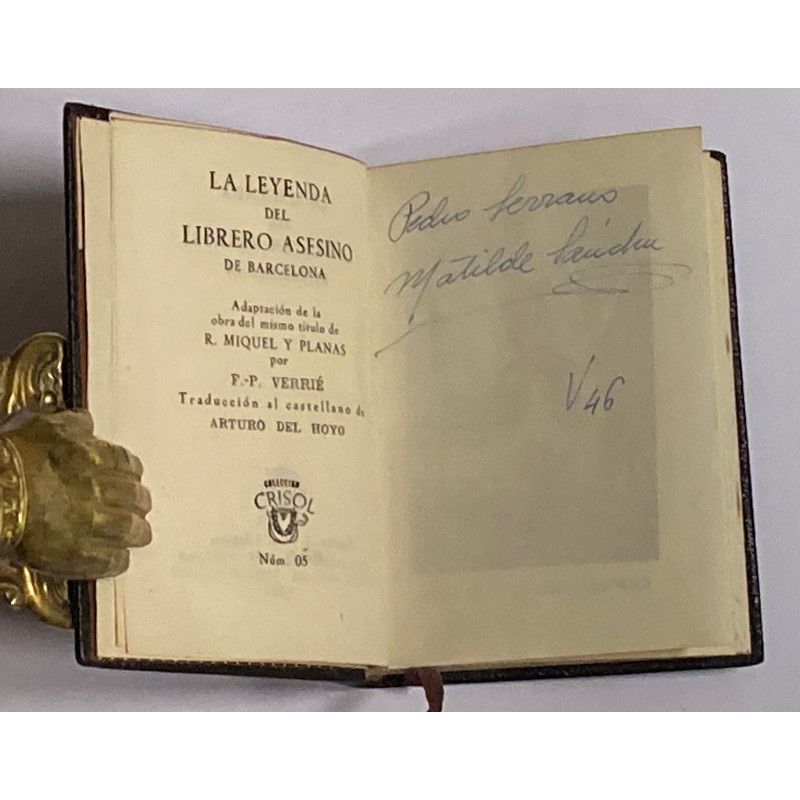 LA LEYENDA
DEL
LIBRERO ASESINO
DE BARCELONA
Adaptación de la
obra del mismo título de
R. MIQUEL Y PLANAS
por
F.-P. VERRIÉ
Traducción al castellano de
ARTURO DEL HOYO
COLECCION
CRISOL
Núm. 05
Pedro Serrano
Matilde Sánchez
V 46